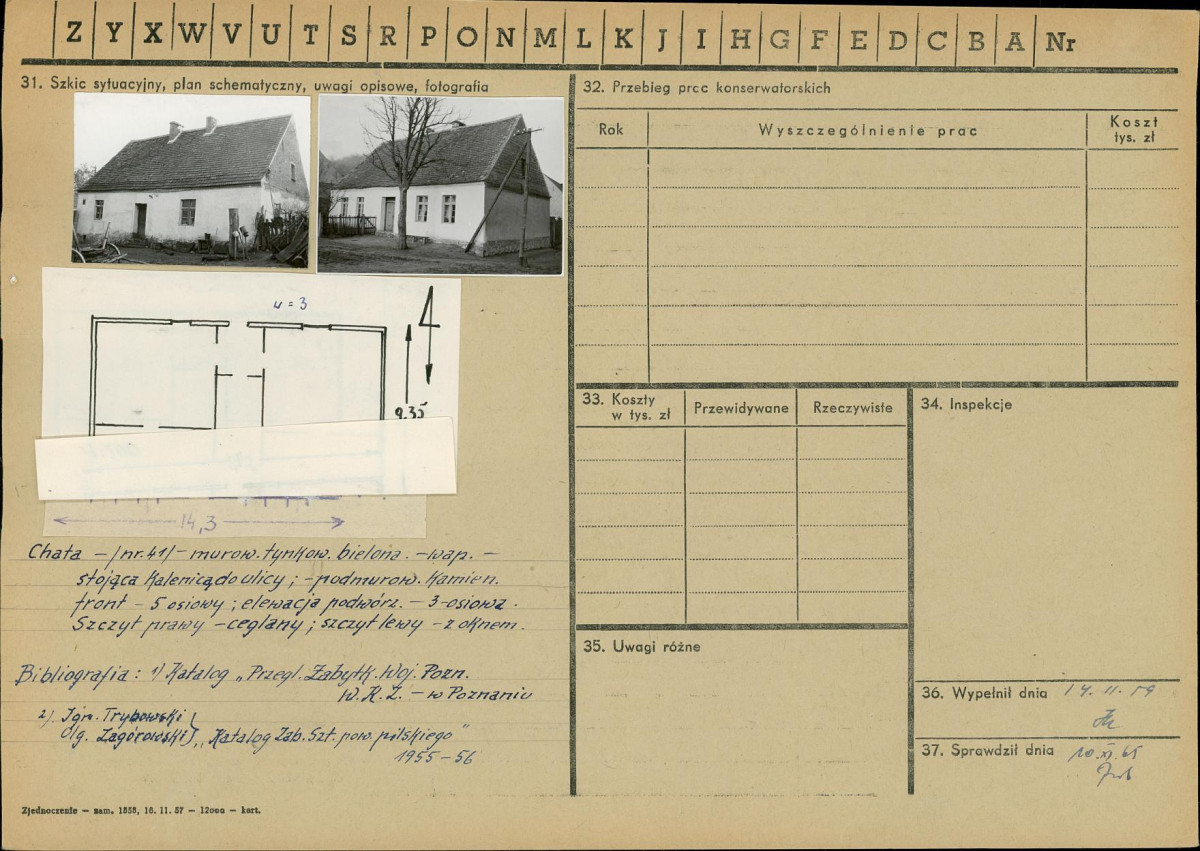 Z Y X W V U T S R P O N M L K J I H G F E D C B A Nr
31. Szkic sytuacyjny, plan schematyczny, uwagi opisowe, fotografia
u = 3
9.35
14,3
Chata – /nr. 41/ – murow. tynkow. bielona. – wap. –
stojąca kalenicą do ulicy; – podmurow. kamien.
front – 5 osiowy; elewacja podwórz. – 3-osiowa.
Szczyt prawy – ceglany; szczyt lewy – z oknem.
Bibliografia: 1) Katalog „Przegl. Zabytk. Woj. Pozn.
W.K.Z. – w Poznaniu
2). Ign. Trybowski
Olg. Zagórowski „Katalog Zab. Szt. pow. pilskiego"
1955–56
Zjednoczenie — zam. 1858, 16. 11. 57 — 12000 — kart.
32. Przebieg prac konserwatorskich
Rok Wyszczególnienie prac Koszt tys. zł
33. Koszty w tys. zł Przewidywane Rzeczywiste
34. Inspekcje
35. Uwagi różne
36. Wypełnił dnia 14. 11. 59
37. Sprawdził dnia 10. XI. 65